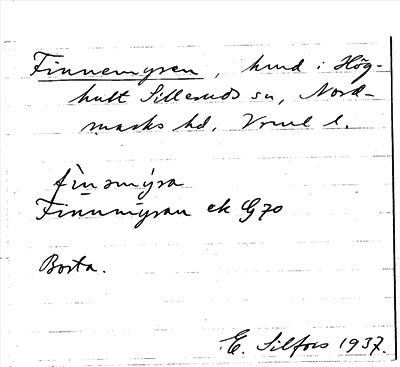 Finnemyren, hmd i Hög-
hult Silleruds sn, Nord-
marks hd, Vrml l.
fìnəmýra
Finnmyran ek G70
Borta.
E. Silfors 1937.